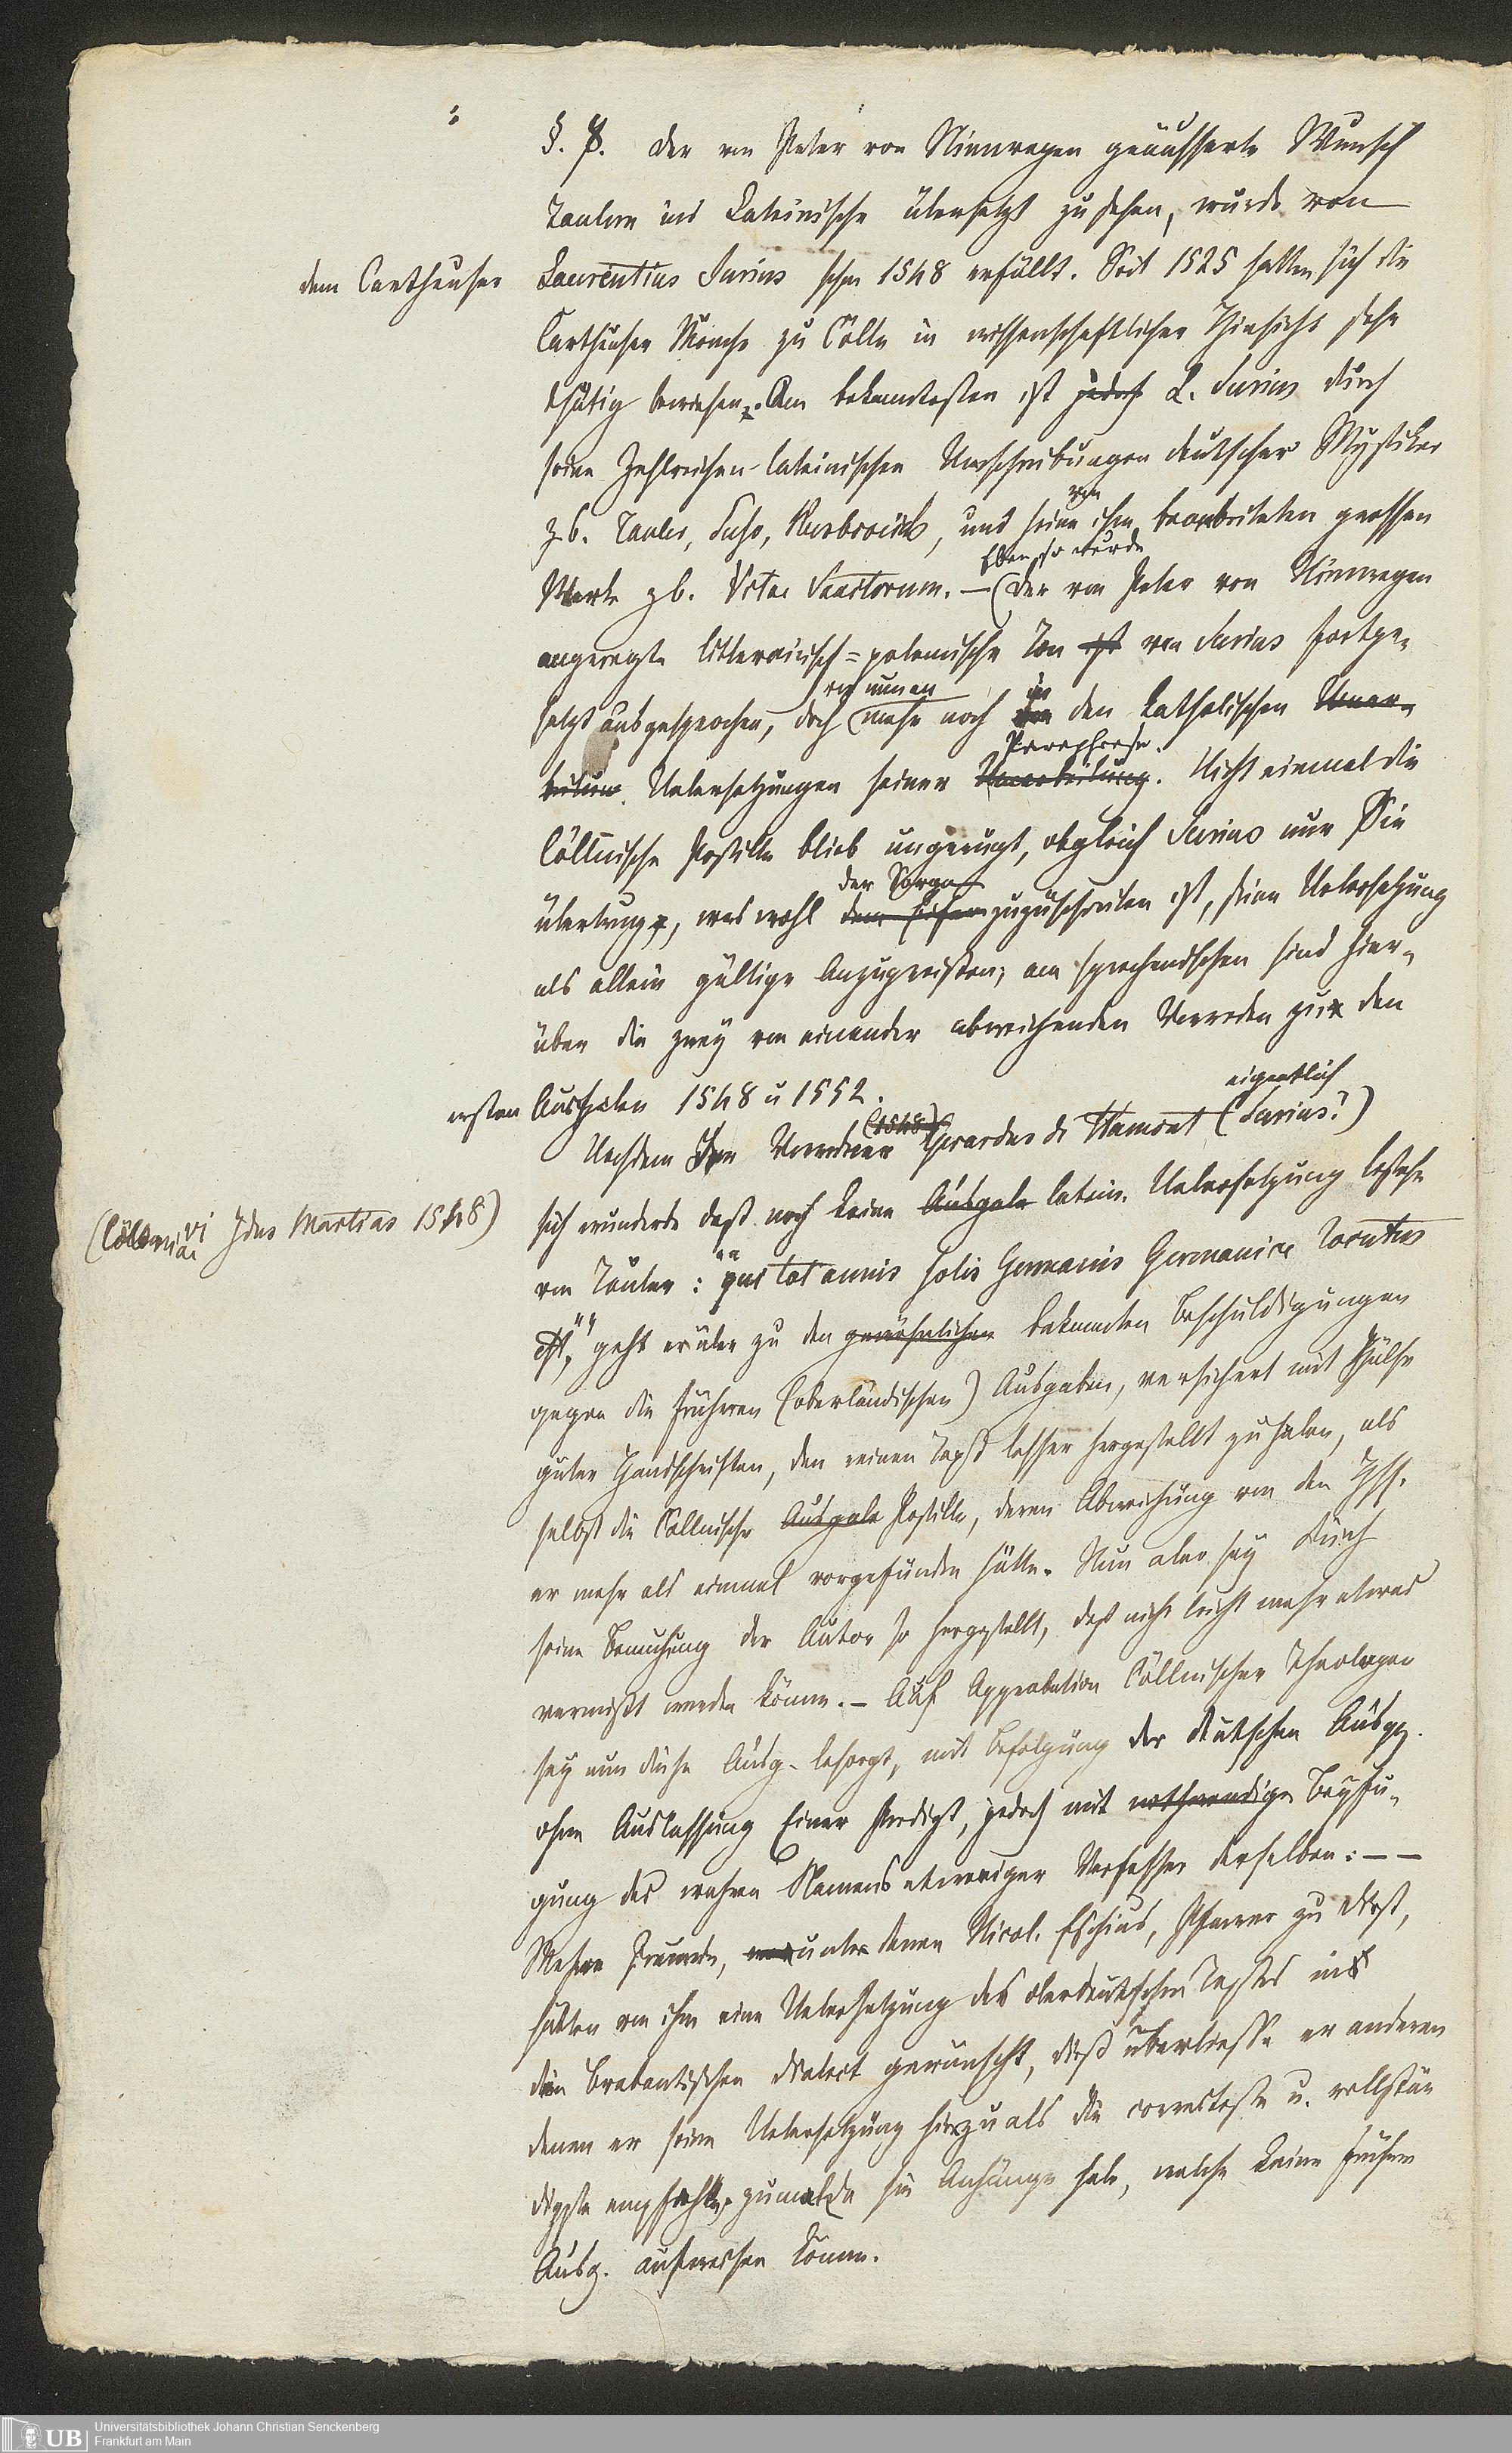 §. 8. Der von Peter von Nimwegen geäusserte Wunsch
Taulern ins Lateinische übersetzt zu sehen, wurde von
dem Carthäuser Laurentius Surius schon 1548 erfüllt. Seit 1525 hatten sich die
Carthäuser Mönche zu Cölln in wissenschaftlicher Hinsicht sehr
thätig bewiesen. Am bekanntesten ist jedoch L. Surius durch
seine zahlreichen lateinischen Umschreibungen deutscher Mystiker
z.b. Tauler, Suso, Rusbroick, und seine von ihm bearbeiteten grossen
Werke z.b. Vitae Sanctorum. — (Ebenso wurde der von Peter von Nimwegen
angeregte litterarisch=polemische Ton ist von Surius fortge-
setzt ausgesprochen, doch mehr noch in den katholischen
Uebersetzungen seiner Umarbeitung Paraphrase. Nicht einmal die
Cöllnische Postille blieb ungerügt, obgleich Surius nur Sie
übertrug, was wohl der Sorge zuzuschreiben ist, seine Uebersetzung
als allein gültige anzupreisen; am sprechendsten sind hier-
über die zwey von einander abweichenden Vorreden zu den
ersten Ausgaben 1548 u 1552.
Nachdem der Vorredner (1548) Gerardus de Hamont (eigentlich Surius?)
(Coloniae vi Idus Martias 1548)
sich wunderte daß noch keine Ausgabe latein. Uebersetzung bestehe
von Tauler: "qui tot annis solis Germanis Germanice locutus
est", geht er über zu den gewöhnlichen bekannten Beschuldigungen
gegen die früheren (oberländischen) Ausgaben, versichert mit Hülfe
guter Handschriften, den reinen Text besser hergestellt zu haben, als
selbst die Cöllnische Ausgabe Postille, deren Abweichung von den Hss.
er mehr als einmal vorgefunden hätte. Nun aber sey durch
seine Bemühung der Autor so hergestellt, daß nicht leicht mehr etwas
vermißt werden könne. — Auf Approbation Cöllnischer Theologen
sey nun diese Ausg. besorgt, mit Befolgung der deutschen Ausgg.
ohne Auslassung Einer Predigt, jedoch mit nothwendiger Beyfü-
gung des wahren Namens etwaiger Verfasser derselben: — —
Mehre Freunde, unter denen Nicol. Eschius, Pfarrer zu Diest,
hätten von ihm eine Uebersetzung des oberdeutschen Textes in
den brabantischen Dialect gewünscht, dieß überliesse er anderen
denen er seine Uebersetzung hiezu als die correcteste u. vollstän
digste empfehle, zumal da sie Anhänge habe, welche keine frühere
Ausg. aufweisen könne.
Universitätsbibliothek Johann Christian Senckenberg
Frankfurt am Main
UB